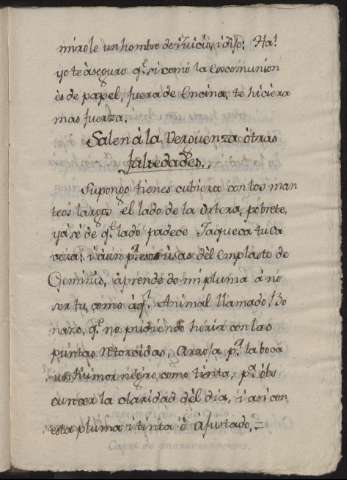 mirole un hombre de Juicio, i dijo: Ha!
yo te aseguro q.e si como la Excomunion
es de papel, fuera de Encina, te hiciera
mas fuerza.
Salen à la Verguenza otras
falsedades.
Supongo tienes cubierta con tos man
teos largos el lado de la
ya sé de q.e lado padece Jaqueca tu Ca
veza: i aun q.e del Emplasto de
aprende de mi pluma à no
ser tu, como aq.l Animal llamado
q.e no pudiendo herir con las
puntas Retorcidas, Arroja p.r la boca
un humor negro, como tinta, p.a obs
curecer la claridad del dia, i asi con
esta pluma i tinta è ajustado, =